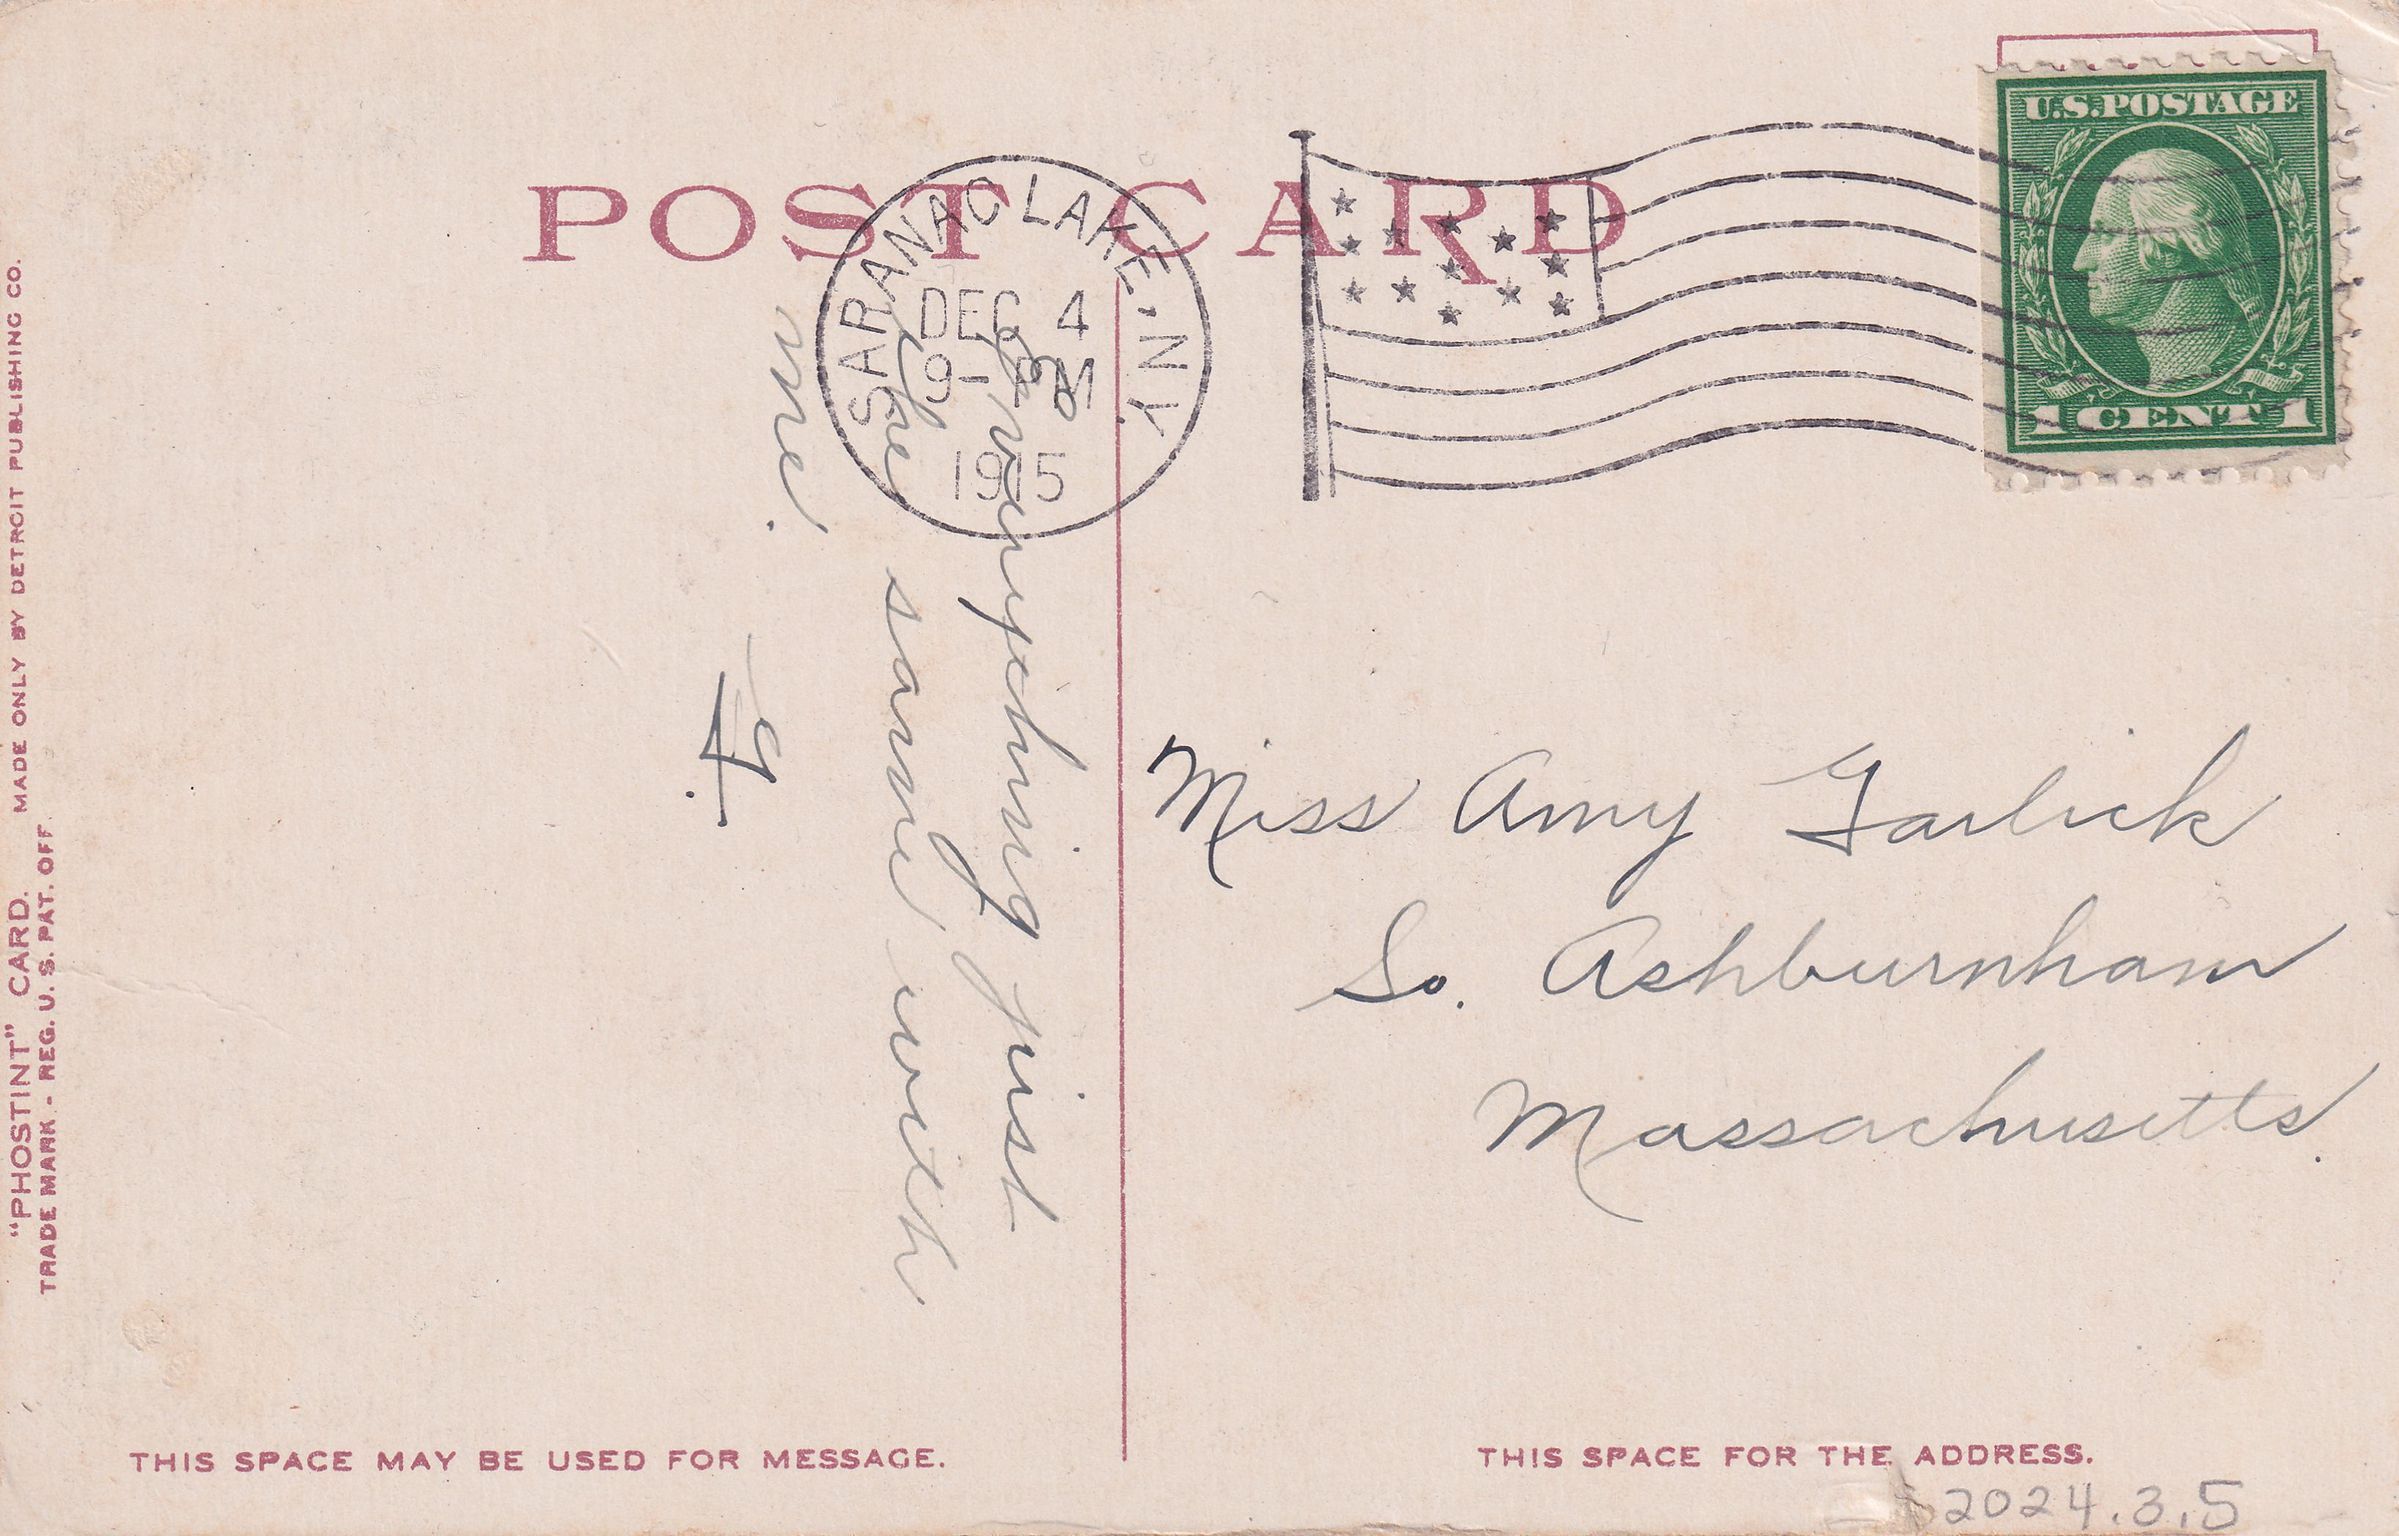 POST CARD
SARANAC LAKE. N.Y.
DEC 4
9- M
1915
U.S. POSTAGE
1 CENT 1
Everything just
the same with
me.
G.
Miss Amy Garlick
So. Ashburnham
Massachusetts.
"PHOSTINT" CARD. MADE ONLY BY DETROIT PUBLISHING CO.
TRADE MARK - REG. U. S. PAT. OFF.
THIS SPACE MAY BE USED FOR MESSAGE.
THIS SPACE FOR THE ADDRESS.
2024.3.5